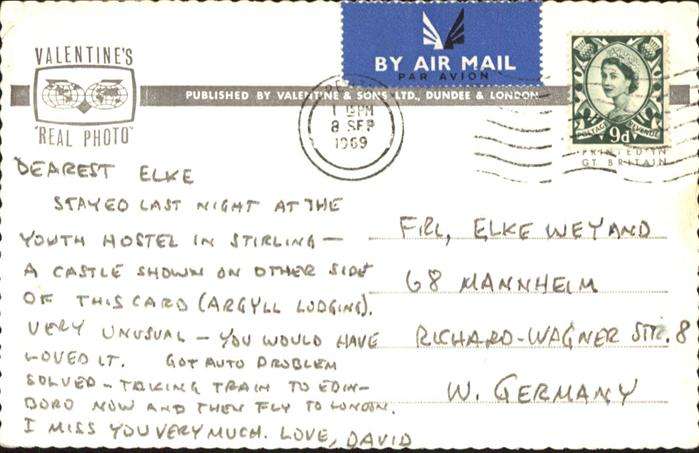 VALENTINE'S
"REAL PHOTO"
BY AIR MAIL
PAR AVION
PUBLISHED BY VALENTINE & SONS LTD., DUNDEE & LONDON
PM
8 SEP
1969
POSTAGE REVENUE
9d
PRINTED IN
GT. BRITAIN
DEAREST ELKE
STAYED LAST NIGHT AT THE
YOUTH HOSTEL IN STIRLING —
A CASTLE SHOWN ON OTHER SIDE
OF THIS CARD (ARGYLL LODGING).
VERY UNUSUAL — YOU WOULD HAVE
LOVED IT. GOT AUTO PROBLEM
SOLVED — TAKING TRAIN TO EDIN-
BORO NOW AND THEN FLY TO LONDON.
I MISS YOU VERY MUCH. LOVE, DAVID
FRL, ELKE WEYAND
68 MANNHEIM
RICHARD-WAGNER STR. 8
W. GERMANY